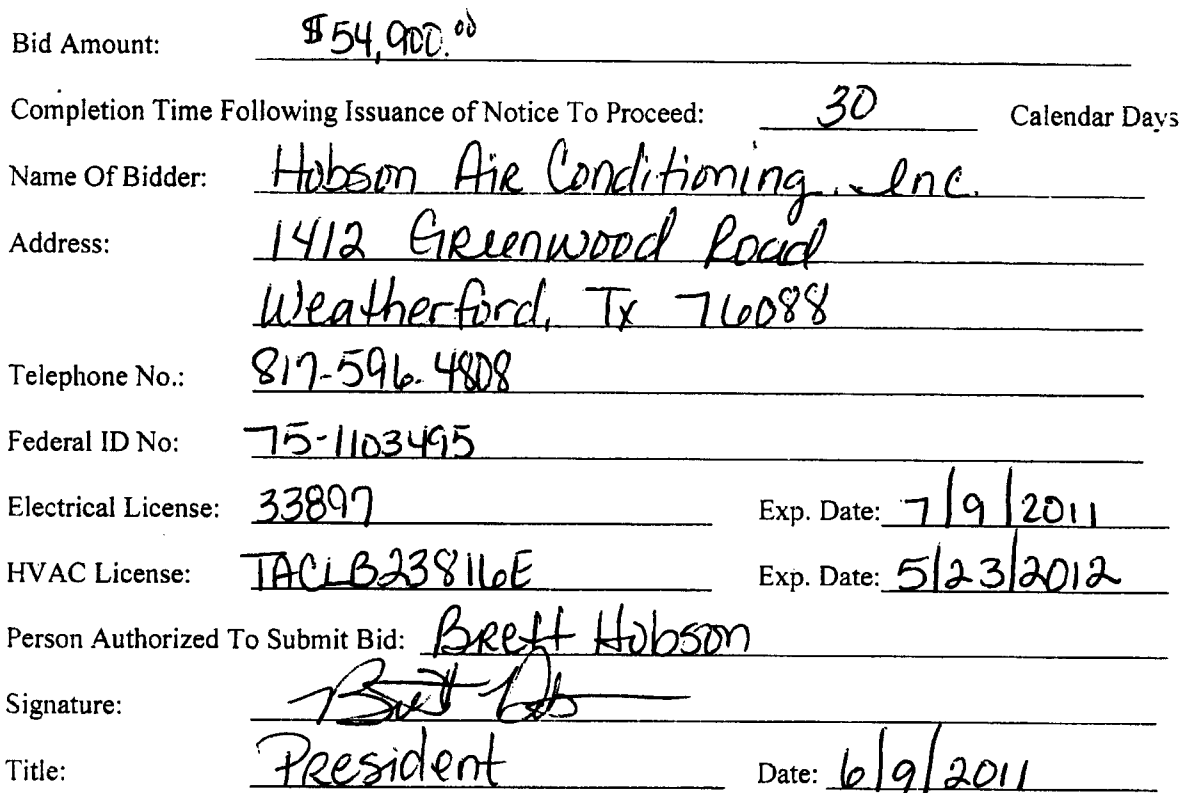 Bid Amount: $54,900.00
Completion Time Following Issuance of Notice To Proceed: 30 Calendar Days
Name Of Bidder: Hobson Air Conditioning, Inc.
Address: 1412 Greenwood Road
Weatherford, Tx 76088
Telephone No.: 817-596-4808
Federal ID No: 75-1103495
Electrical License: 33897 Exp. Date: 7/9/2011
HVAC License: TACLB23816E Exp. Date: 5/23/2012
Person Authorized To Submit Bid: Brett Hobson
Signature:
Title: President Date: 6/9/2011